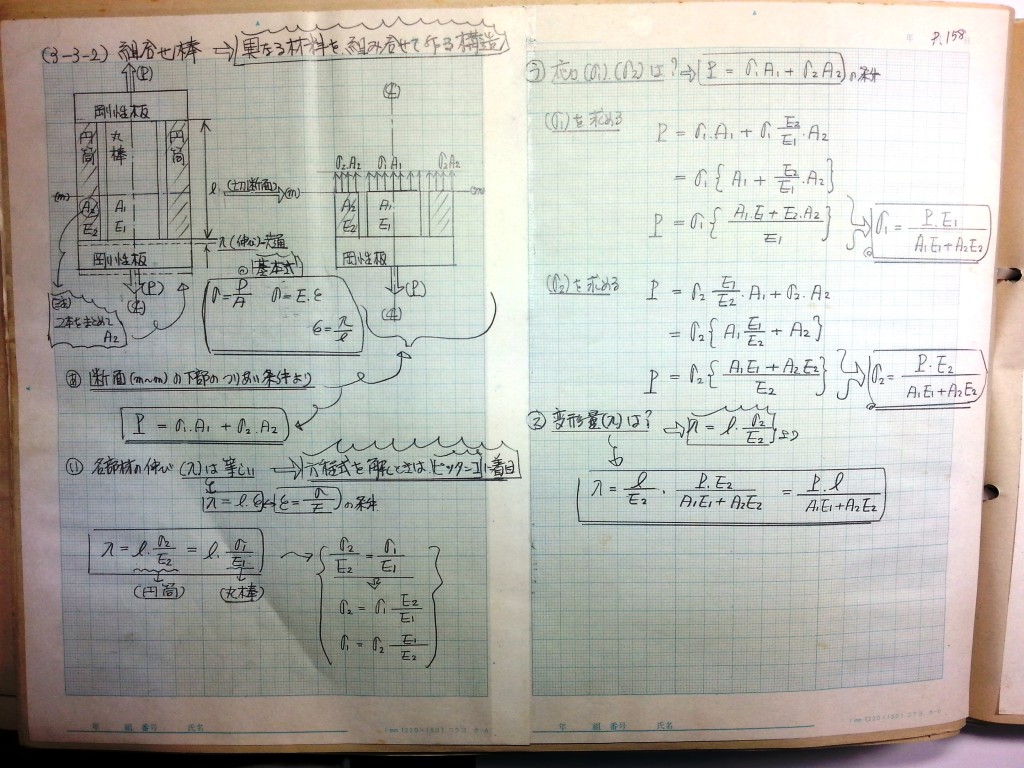 (3-3-2) 組合せ棒 → 異なる材料を組み合せて作る構造
(P)
剛性板
円筒
丸棒
円筒
(m)
A2
E2
A1
E1
l
λ(伸び)共通
剛性板
(P)
(注)
2本をまとめて
A2
(切断面)
(m)
σ2A2 σ1A1 σ2A2
(m)
A2
E2
A1
E1
剛性板
(P)
基本式
σ=P/A σ=E.ε
ε=λ/l
断面(m~m)の下部のつりあい条件より
P = σ1.A1 + σ2.A2
各部材の伸び(λ)は等しい → 方程式を解くときは
着目
λ=l.ε
ε=σ/E
の条件
λ=l.σ2/E2 = l.σ1/E1
(円筒) (丸棒)
σ2/E2 = σ1/E1
σ2 = σ1 E2/E1
σ1 = σ2 E1/E2
年 組 番号 氏名
P.158
応力(σ1)(σ2)は? → P = σ1A1 + σ2A2 の条件
(σ1)を求める
P = σ1.A1 + σ1 E2/E1 . A2
= σ1{A1 + E2/E1 . A2}
P = σ1{(A1E1 + E2.A2)/E1}
σ1 = P.E1/(A1E1+A2E2)
(σ2)を求める
P = σ2 E1/E2 . A1 + σ2.A2
= σ2{A1 E1/E2 + A2}
P = σ2{(A1E1 + A2E2)/E2}
σ2 = P.E2/(A1E1+A2E2)
② 変形量(λ)は? → λ=l.σ2/E2 より
λ = l/E2 . P.E2/(A1E1+A2E2) = P.l/(A1E1+A2E2)
年 組 番号 氏名